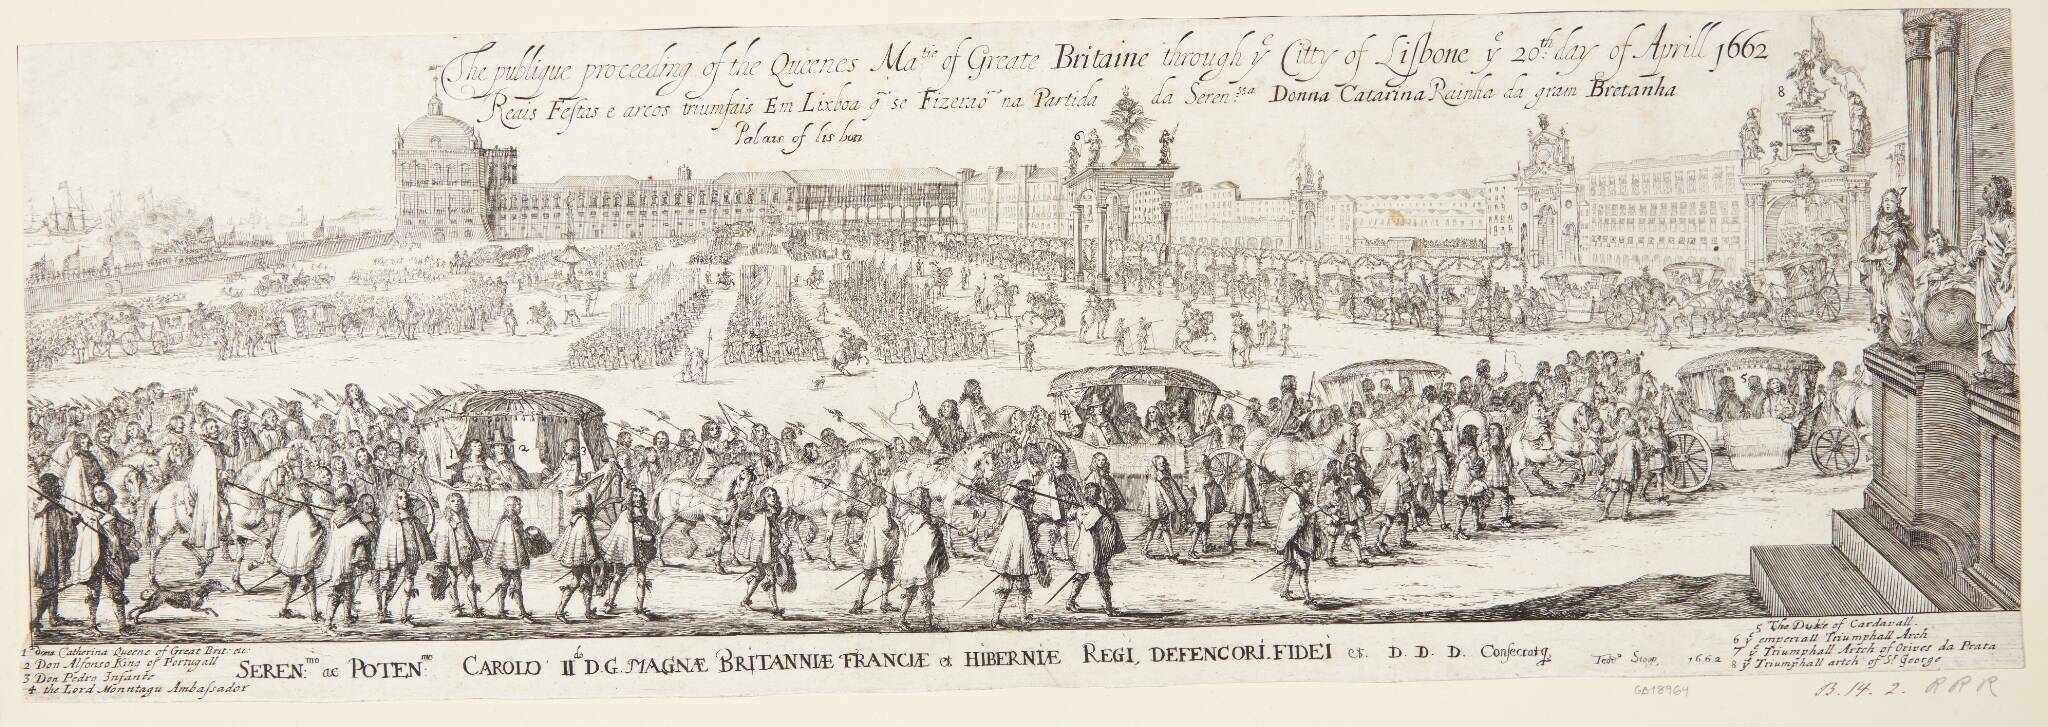 The publique proceeding of the Queenes Ma^tie of Greate Britaine through y^e Citty of Lisbone y^e 20^th day of Aprill 1662
Reais Festas e arcos triumfais Em Lixboa q̃ se Fizeraõ na Partida da Seren^ssa Donna Catarina Rainha da gram Bretanha
Palais of lis bon
6
8
7
1
2
3
4
5
1 Dona Catherina Queene of Great Brit: etc:
2 Don Alfonso King of Portugall
3 Don Pedro Infante
4 the Lord Monntagu Ambassador
SEREN:^mo ac POTEN:^mo CAROLO II^do D.G. MAGNÆ BRITANNIÆ FRANCIÆ et HIBERNIÆ REGI, DEFENCORI.FIDEI et. D.D.D. Consecratq̃
Tedo^s Stoop, 1662
5 The Duke of Cardavall
6 y^e emperiall Triumphall Arch
7 y^e Triumphall Artch of Orives da Prata
8 y^e Triumphall artch of S^t George
GB18964
B. 14. 2. R R R